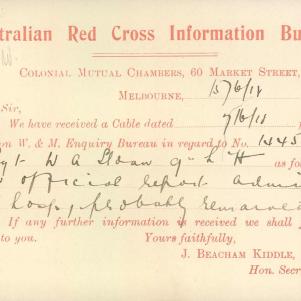 tralian Red Cross Information Bu
Colonial Mutual Chambers, 60 Market Street,
Melbourne, 15/6/18
Sir,
We have received a Cable dated 7/6/18
n W. & M. Enquiry Bureau in regard to No. 1345
gt W A Sloan 9th L H as fo
official report admi
hosp, probably remained
If any further information is received we shall
to you. Yours faithfully,
J. Beacham Kiddle,
Hon. Secre